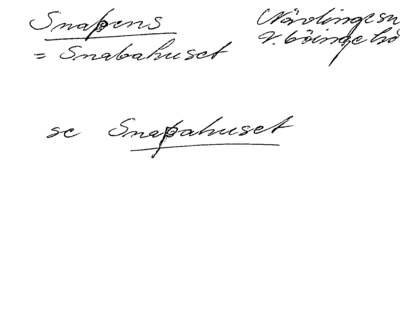 Snapens
= Snabahuset
Nävlinge sn
V. Göinge hd
se Snapahuset